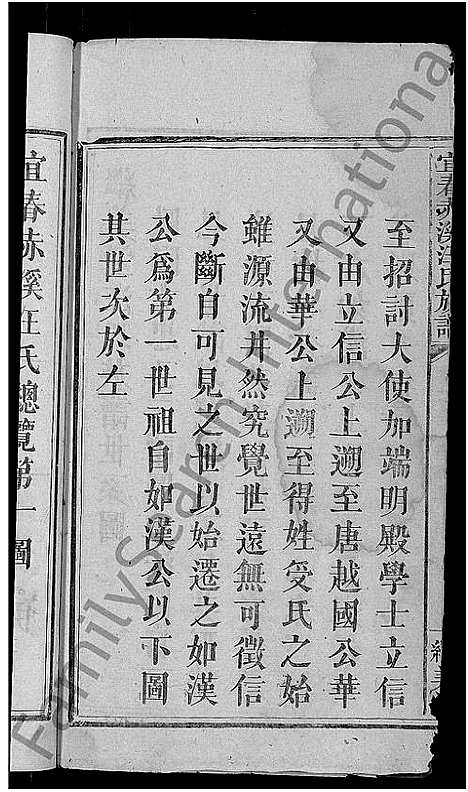 宜春赤溪汪氏族譜
至招討大使加端明殿學士立信
又由立信公上遡至唐越國公華
又由華公上遡至得姓受氏之始
雖源流井然究覺世遠無可徵信
今斷自可見之世以始遷之如漢
公爲第一世祖自如漢公以下圖
其世次於左
宜春赤溪汪氏總覽第一圖
FamilySearch International